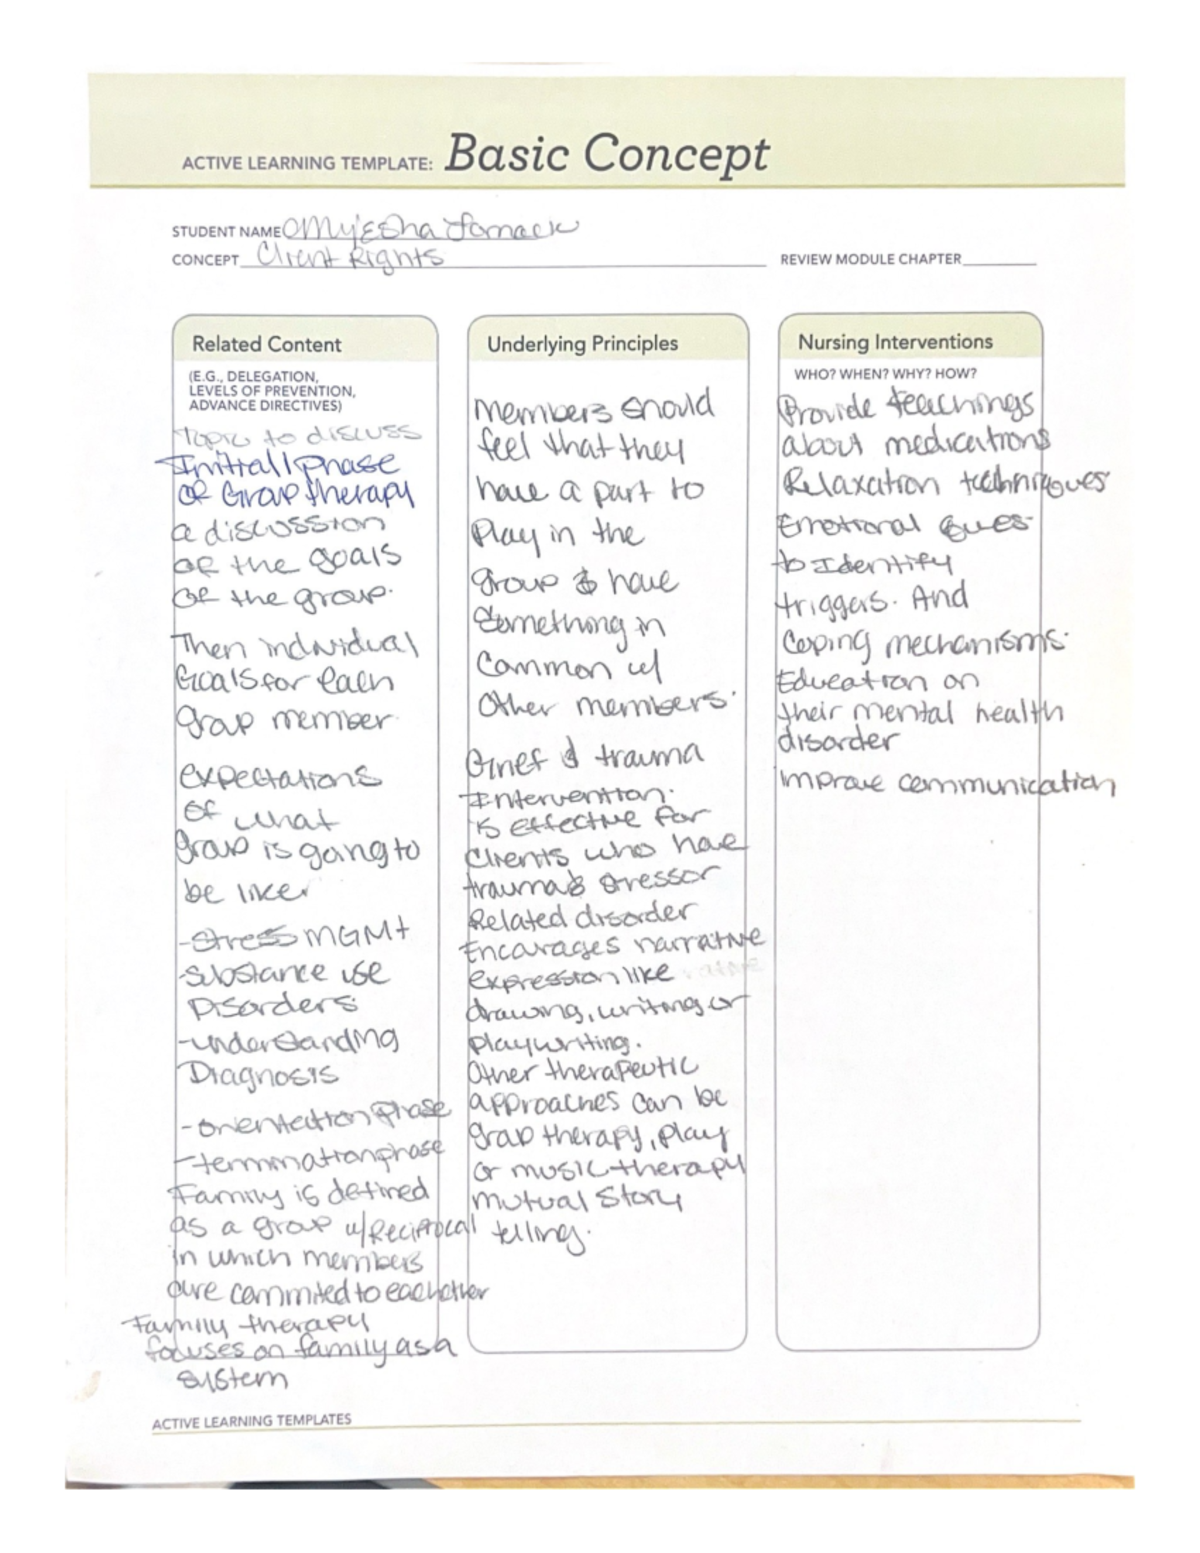 ACTIVE LEARNING TEMPLATE: Basic Concept
STUDENT NAME Myiesha Tomack
CONCEPT Client Rights
REVIEW MODULE CHAPTER
Related Content
(E.G., DELEGATION,
LEVELS OF PREVENTION,
ADVANCE DIRECTIVES)
Topic to discuss
Initial phase
of Group therapy
a discussion
of the goals
of the group.
Then individual
Goals for each
group member
expectations
of what
group is going to
be like
-Stress MGMt
-substance use
Disorders
-understanding
Diagnosis
-orientation phase
-termination phase
Family is defined
as a group w/ Reciprocal
in which members
are commited to eachother
Family therapy
focuses on family as a
system
Underlying Principles
Members should
feel that they
have a part to
Play in the
group & have
Something in
Common w/
Other members.
Grief & trauma
Intervention.
is effective for
Clients who have
trauma & stressor
Related disorder
Encourages narrative
expression like
drawing, writing or
playwriting.
Other therapeutic
approaches can be
group therapy, play
or music therapy
mutual Story
telling.
Nursing Interventions
WHO? WHEN? WHY? HOW?
Provide teachings
about medications
Relaxation techniques
Emotional cues
to Identify
triggers. And
Coping mechanisms.
Education on
their mental health
disorder
improve communication
ACTIVE LEARNING TEMPLATES